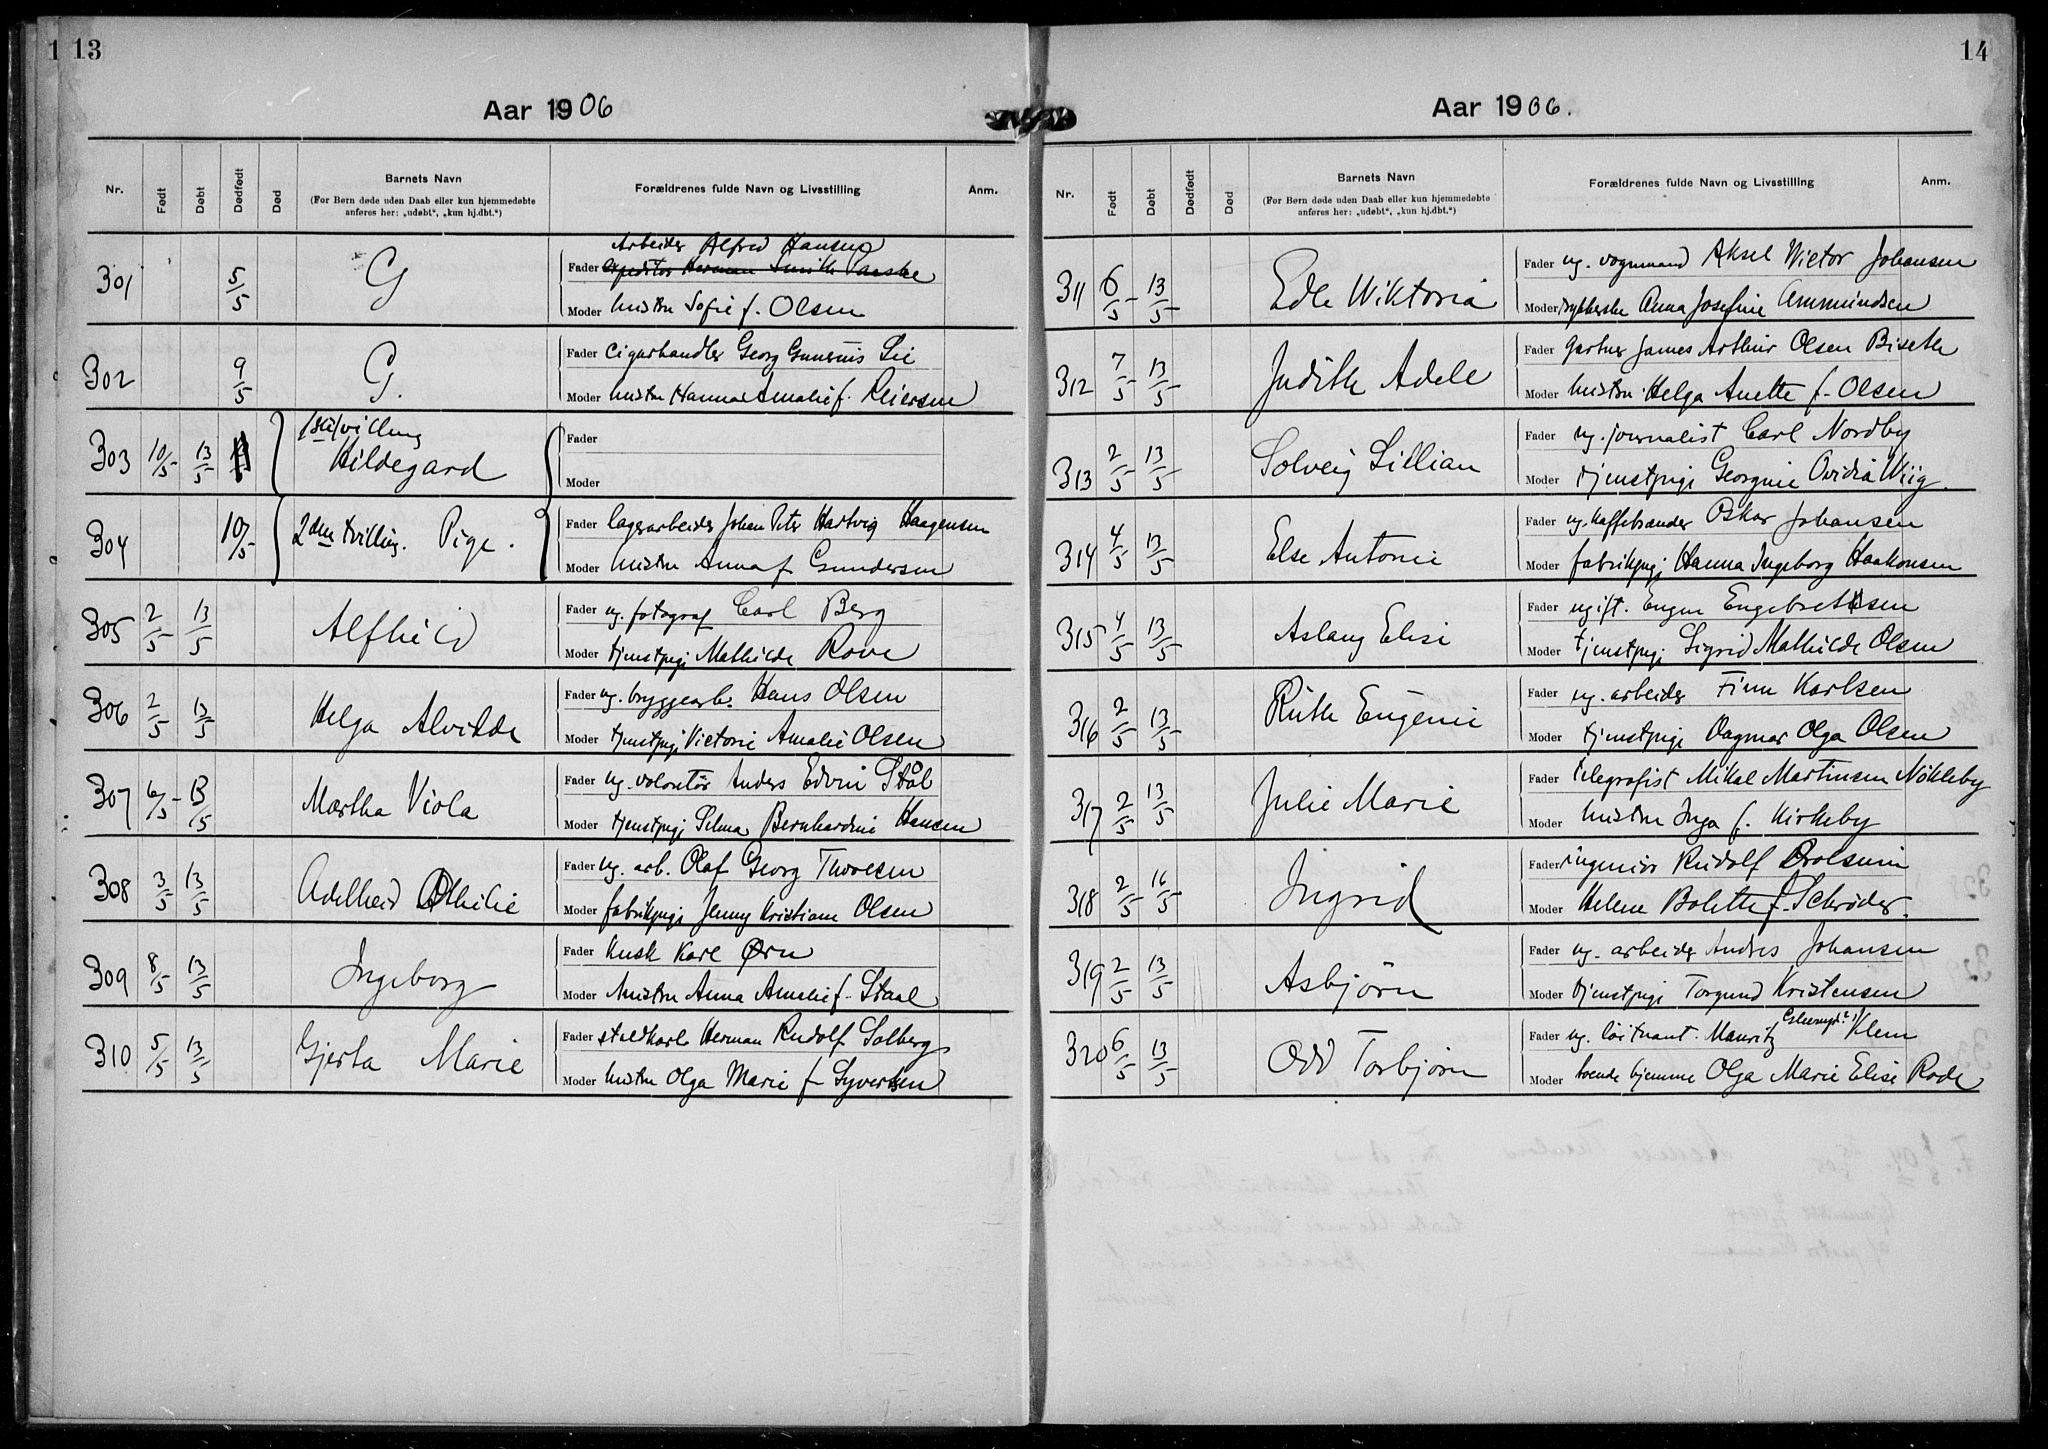 1 13
Aar 1906
Nr. Født Døbt Dødfødt Død Barnets Navn Forældrenes fulde Navn og Livsstilling Anm.
(For Børn døde uden Daab eller kun hjemmedøbte
anføres her: „udøbt“, „kun hj.dbt.“)
Arbeider Alfred Hansen
301 5/5 G Fader Expeditør Herman Smith
Moder hustru Sofie f. Olsen
302 9/5 G. Fader Cigarhandler Georg Gunerius Lie
Moder hustru Hanna Amalie f. Reiersen
1ste tvilling
303 10/5 13/5 Hildegard Fader
Moder
304 10/5 2den tvilling. Pige. Fader lagerarbeider Johan Peter Hartvig Haagensen
Moder hustru Anna f Gundersen
305 2/5 13/5 Alfhild Fader ug. fotograf Carl Berg
Moder tjenstpige Mathilde Rove
306 2/5 13/5 Helga Alvilde Fader ug. bryggearb. Hans Olsen
Moder tjenstpige Victorie Amalie Olsen
307 6/5 13/5 Martha Viola Fader ug. volontør Anders Edvin Stål
Moder tjenstpige Selma Bernhardine Hansen
308 3/5 13/5 Adelheid Othilie Fader ug. arb. Olaf Georg Thoresen
Moder fabrikpige Jenny Kristiane Olsen
309 8/5 13/5 Ingeborg Fader kusk Karl Ørn
Moder hustru Anna Amalie f. Staal
310 5/5 13/5 Gjerta Marie Fader staldkarl Herman Rudolf Solberg
Moder hustru Olga Marie f Syversen
14
Aar 1906.
Nr. Født Døbt Dødfødt Død Barnets Navn Forældrenes fulde Navn og Livsstilling Anm.
(For Børn døde uden Daab eller kun hjemmedøbte
anføres her: „udøbt“, „kun hj.dbt.“)
311 6/5 13/5 Edle Wiktoria Fader ug. vognmand Aksel Victor Johansen
Moder sypige Anna Josefine Ammundsen
312 7/5 13/5 Judith Adele Fader gartner James Arthur Olsen Biseth
Moder hustru Helga Anette f. Olsen
313 2/5 13/5 Solveig Lillian Fader ug. journalist Carl Nordby
Moder tjenstpige Georgine Ovidia Wiig.
314 4/5 13/5 Else Antonie Fader ug. kaffebrænder Oskar Johansen
Moder fabrikpige Hanna Ingeborg Haakonsen
315 4/5 13/5 Aslaug Elise Fader ugift. Eugen Engebretsen
Moder tjenstpige Sigrid Mathilde Olsen
316 2/5 13/5 Ruth Eugenie Fader ug. arbeider Finn Karlsen
Moder tjenstpige Dagmar Olga Olsen
317 2/5 13/5 Julie Marie Fader telegrafist Mikal Martinsen Nøkleby
Moder hustru Inga f. Kirkeby
318 2/5 16/5 Ingrid Fader ingeniør Rudolf
Moder Helene Bolette f. Schrøder.
319 2/5 13/5 Asbjørn Fader ug. arbeider Andres Johansen
Moder tjenstpige Torgund Kristensen
320 6/5 13/5 Odd Torbjørn Fader ug. løitnant Mauritz Klem
Moder boende hjemme Olga Marie Elise Rode